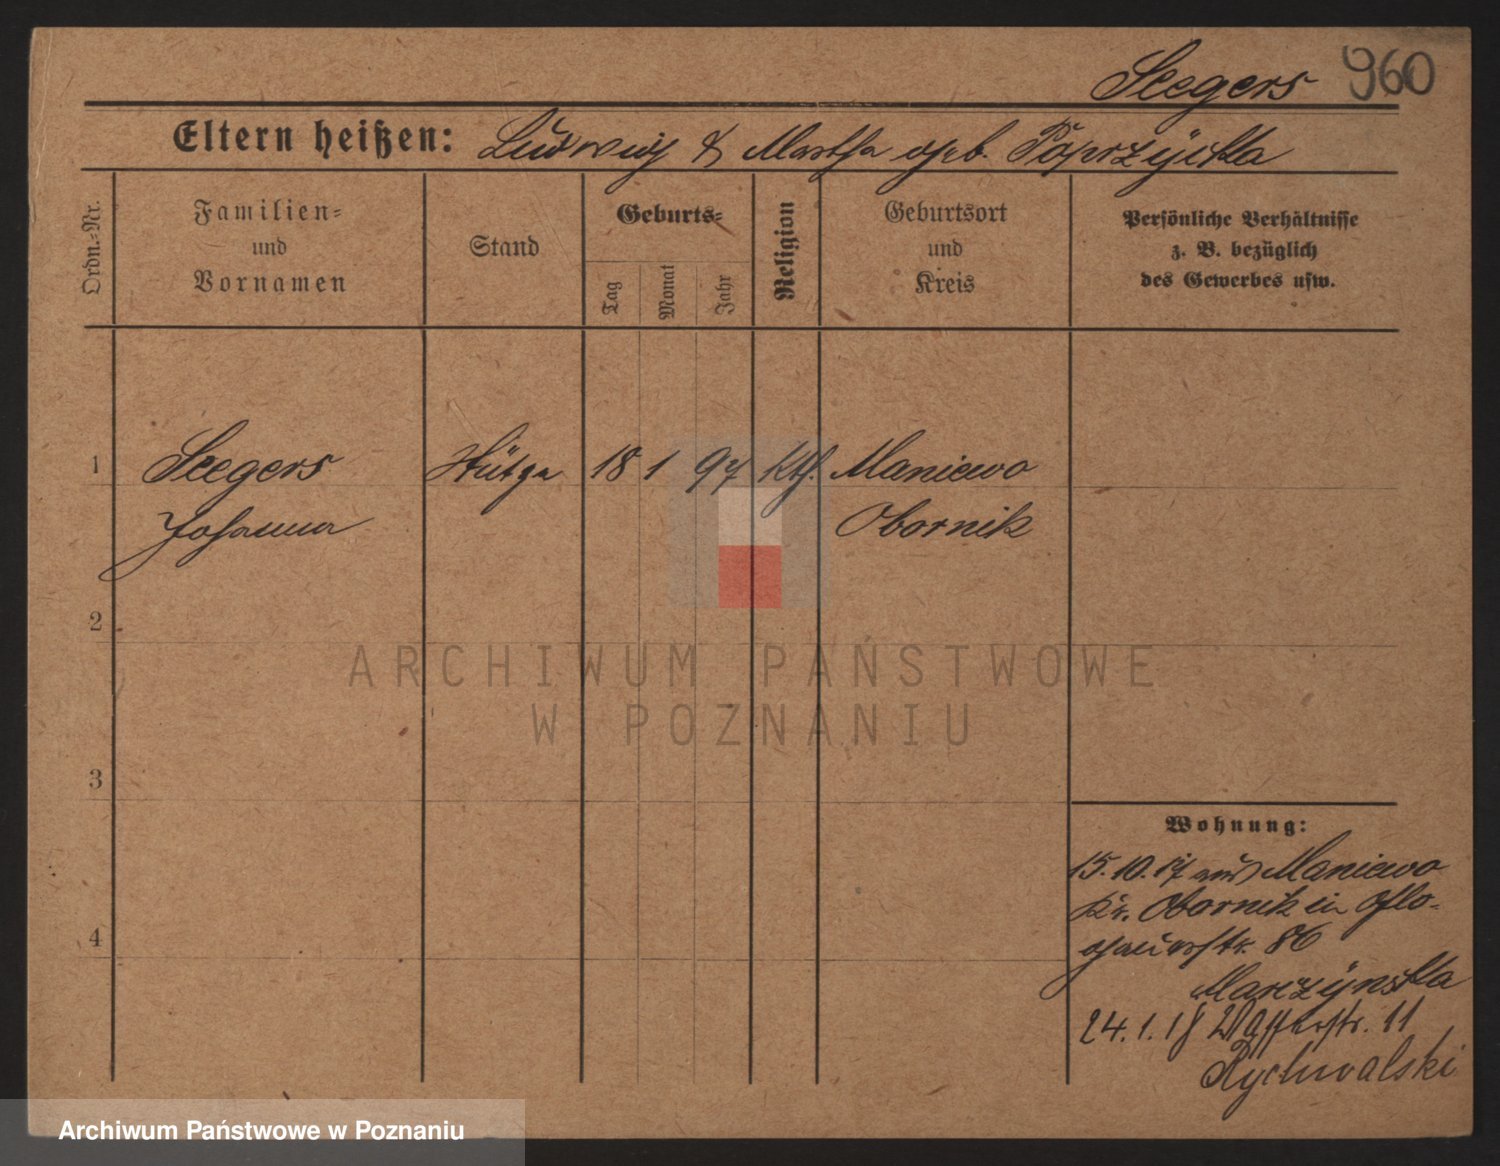 Seegers 960
Eltern heißen: Ludwig & Martha geb. Poprzÿcka
Ordn.-Nr.
Familien-
und
Vornamen
Stand
Geburts-
Tag
Monat
Jahr
Religion
Geburtsort
und
Kreis
Persönliche Verhältnisse
z. B. bezüglich
des Gewerbes usw.
1 Seegers Stütze 18 1 97 kth. Maniewo
Johanna Obornik
2
ARCHIWUM PAŃSTWOWE
W POZNANIU
3
4
Wohnung:
15.10.17 aus Maniewo
Kr. Obornik in Glo-
gauerstr. 86
Marzÿnska
24.1.18 Wasserstr. 11
Rychwalski
Archiwum Państwowe w Poznaniu